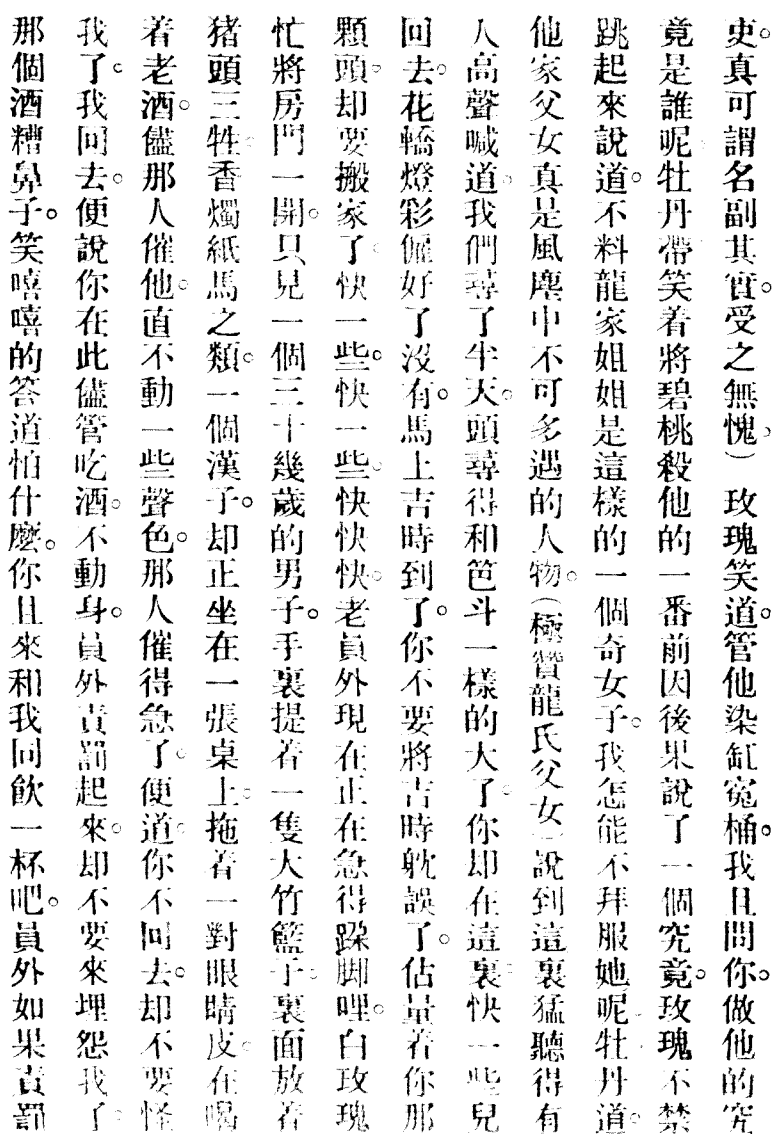 史。真可謂名副其實。受之無愧。）玫瑰笑道。管他染缸寃桶。我且問你。做他的究
竟是誰呢。牡丹帶笑着將碧桃殺他的一番前因後果說了一個究竟。玫瑰不禁
跳起來說道。不料龍家姐姐是這樣的一個奇女子。我怎能不拜服她呢。牡丹道。
他家父女真是風塵中不可多遇的人物。（極贊龍氏父女）說到這裏猛聽得有
人高聲喊道。我們尋了半天。頭尋得和笆斗一樣的大了。你却在這裏。快一些兒
回去。花轎燈彩僱好了沒有。馬上吉時到了。你不要將吉時躭誤了。估量着你那
顆頭。却要搬家了。快一些。快一些。快快快。老員外現在正在急得跺脚哩。白玫瑰
忙將房門一開。只見一個三十幾歲的男子。手裏提着一隻大竹籃子。裏面放着
猪頭三牲。香燭紙馬之類。一個漢子。却正坐在一張桌上。拖着一對眼睛皮。在喝
着老酒。儘那人催他。直不動一些聲色。那人催得急了。便道。你不回去。却不要怪
我了。我回去。便說你在此儘管吃酒。不動身。員外責罰起來。却不要來埋怨我了。
那個酒糟鼻子。笑嘻嘻的答道怕什麼。你且來和我回飲一杯吧。員外如果責罰